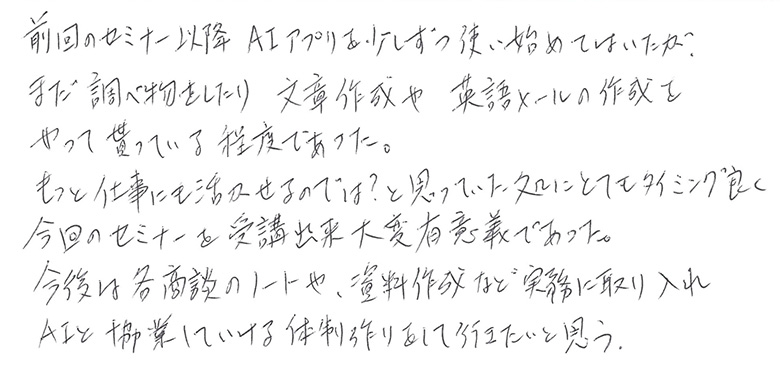 前回のセミナー以降 AIアプリを少しずつ使い始めてはいたが、
まだ調べ物をしたり 文章作成や 英語メールの作成を
やって貰っている程度であった。
もっと仕事にも活かせるのでは?と思っていた処にとてもタイミング良く
今回のセミナーを受講出来大変有意義であった。
今後は各商談のノートや、資料作成など実務に取り入れ
AIと協業していける体制作りをして行きたいと思う.